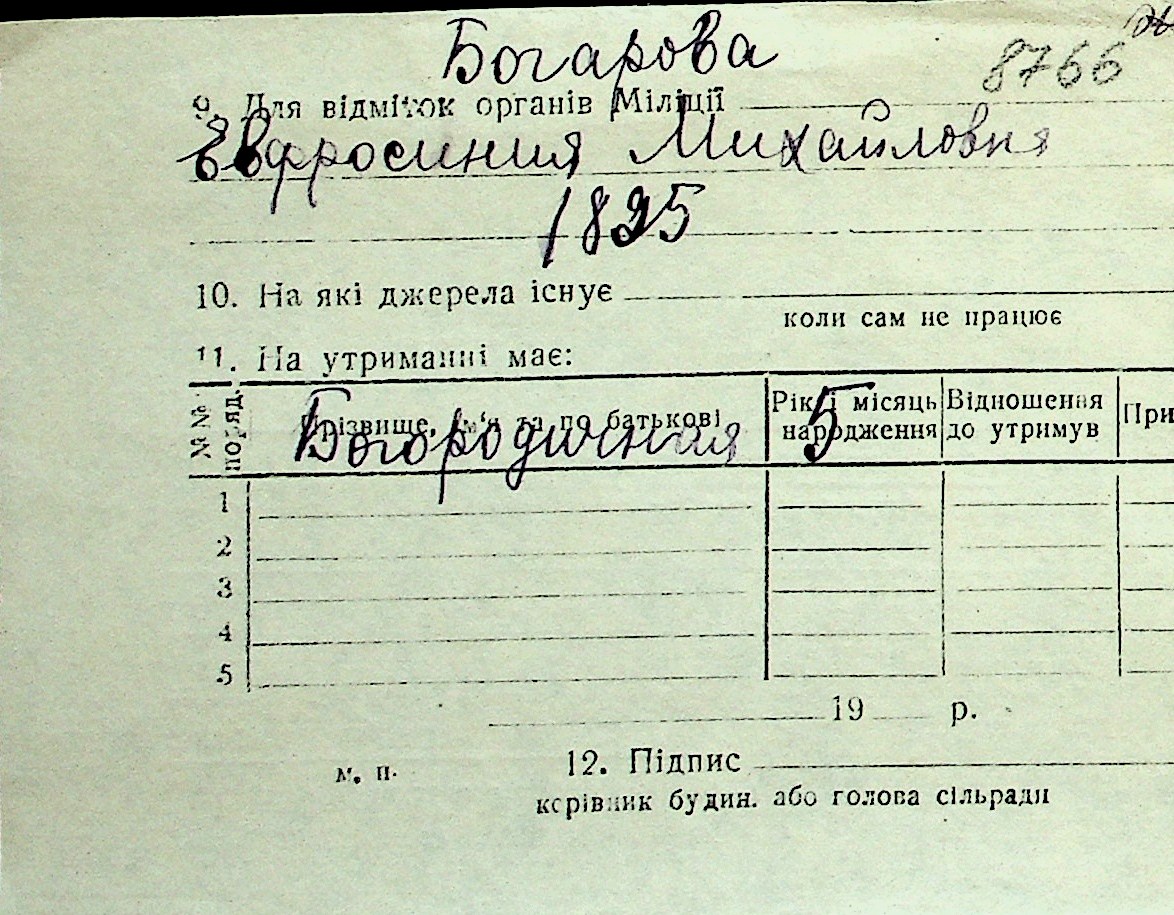 Богарова
8766
9. Для відміток органів Міліції
Евфросиния Михайловна
1895
10. На які джерела існує
коли сам не працює
11. На утриманні має:
№№ поряд. Прізвище, ім'я та по батькові Рік і місяць народження Відношення до утримув При
Богородичная 5
1
2
3
4
5
19 р.
м. п. 12. Підпис
керівник будин. або голова сільради